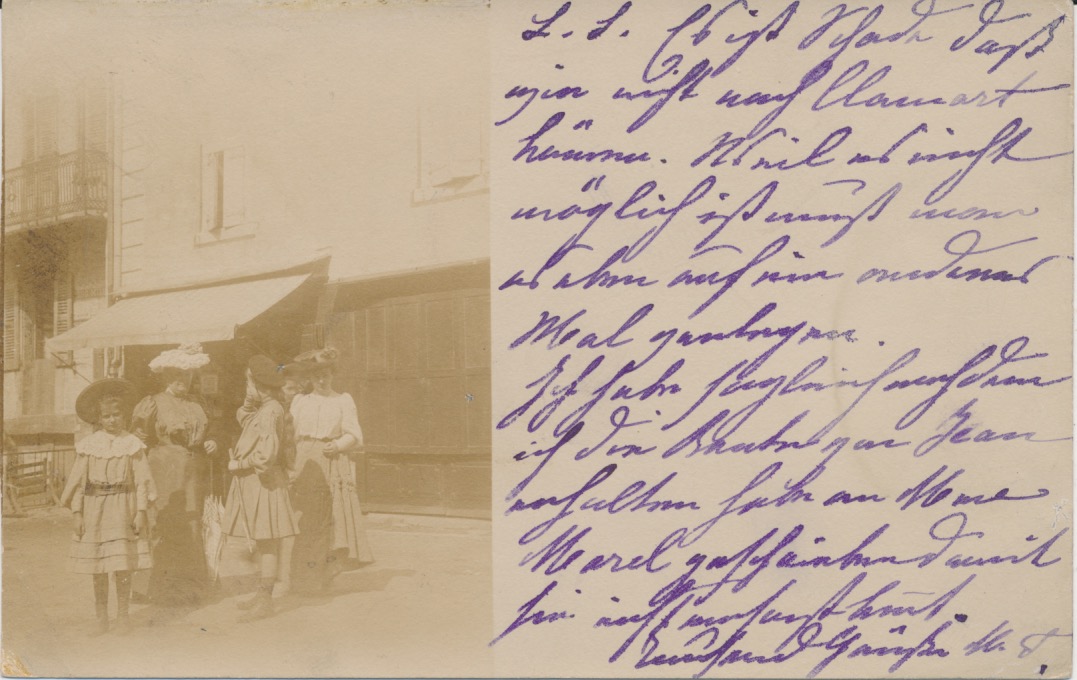 L. L. Es ist Schade daß
wir nicht nach Clamart
können. Weil es nicht
möglich ist muß man
es eben auf ein anderes
Mal verlegen.
Ich habe sogleich nachdem
ich die Karte von Jean
erhalten habe an Mme
Marel geschrieben damit
sie nicht umsonst kommt.
Kuß und Grüße M. T.